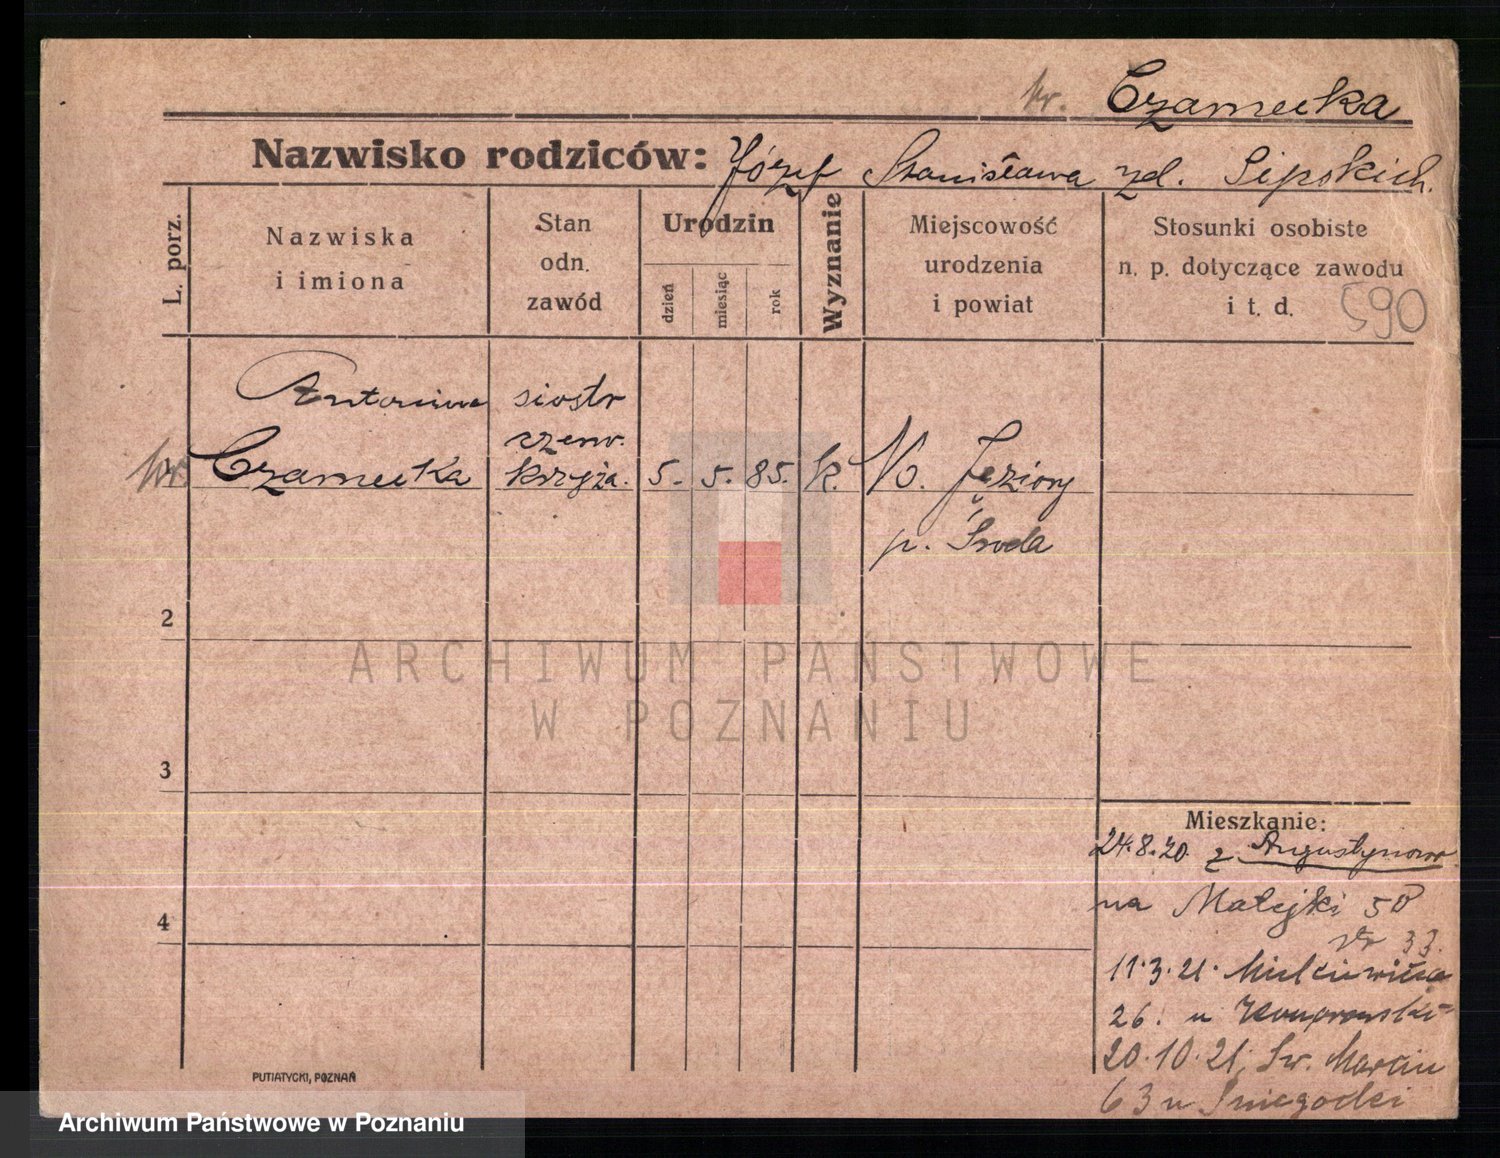 kr. Czarnecka
Nazwisko rodziców: Józef Stanisława zd. Sipskich.
L. porz.
Nazwiska
i imiona
Stan
odn.
zawód
Urodzin
dzień
miesiąc
rok
Wyznanie
Miejscowość
urodzenia
i powiat
Stosunki osobiste
n. p. dotyczące zawodu
i t. d.
590
Antonina siostr
czerw.
kr. Czarnecka krzyża. 5. 5. 85. k. N. Jeziory
p. Środa
2
ARCHIWUM PAŃSTWOWE
W POZNANIU
3
Mieszkanie:
24.8.20. z Augustynowo
na Matejki 50
33.
4
11.3.21.
26. u
20.10.21. Św. Marcin
63 u Śniegocki
PUTIATYCKI, POZNAŃ
Archiwum Państwowe w Poznaniu